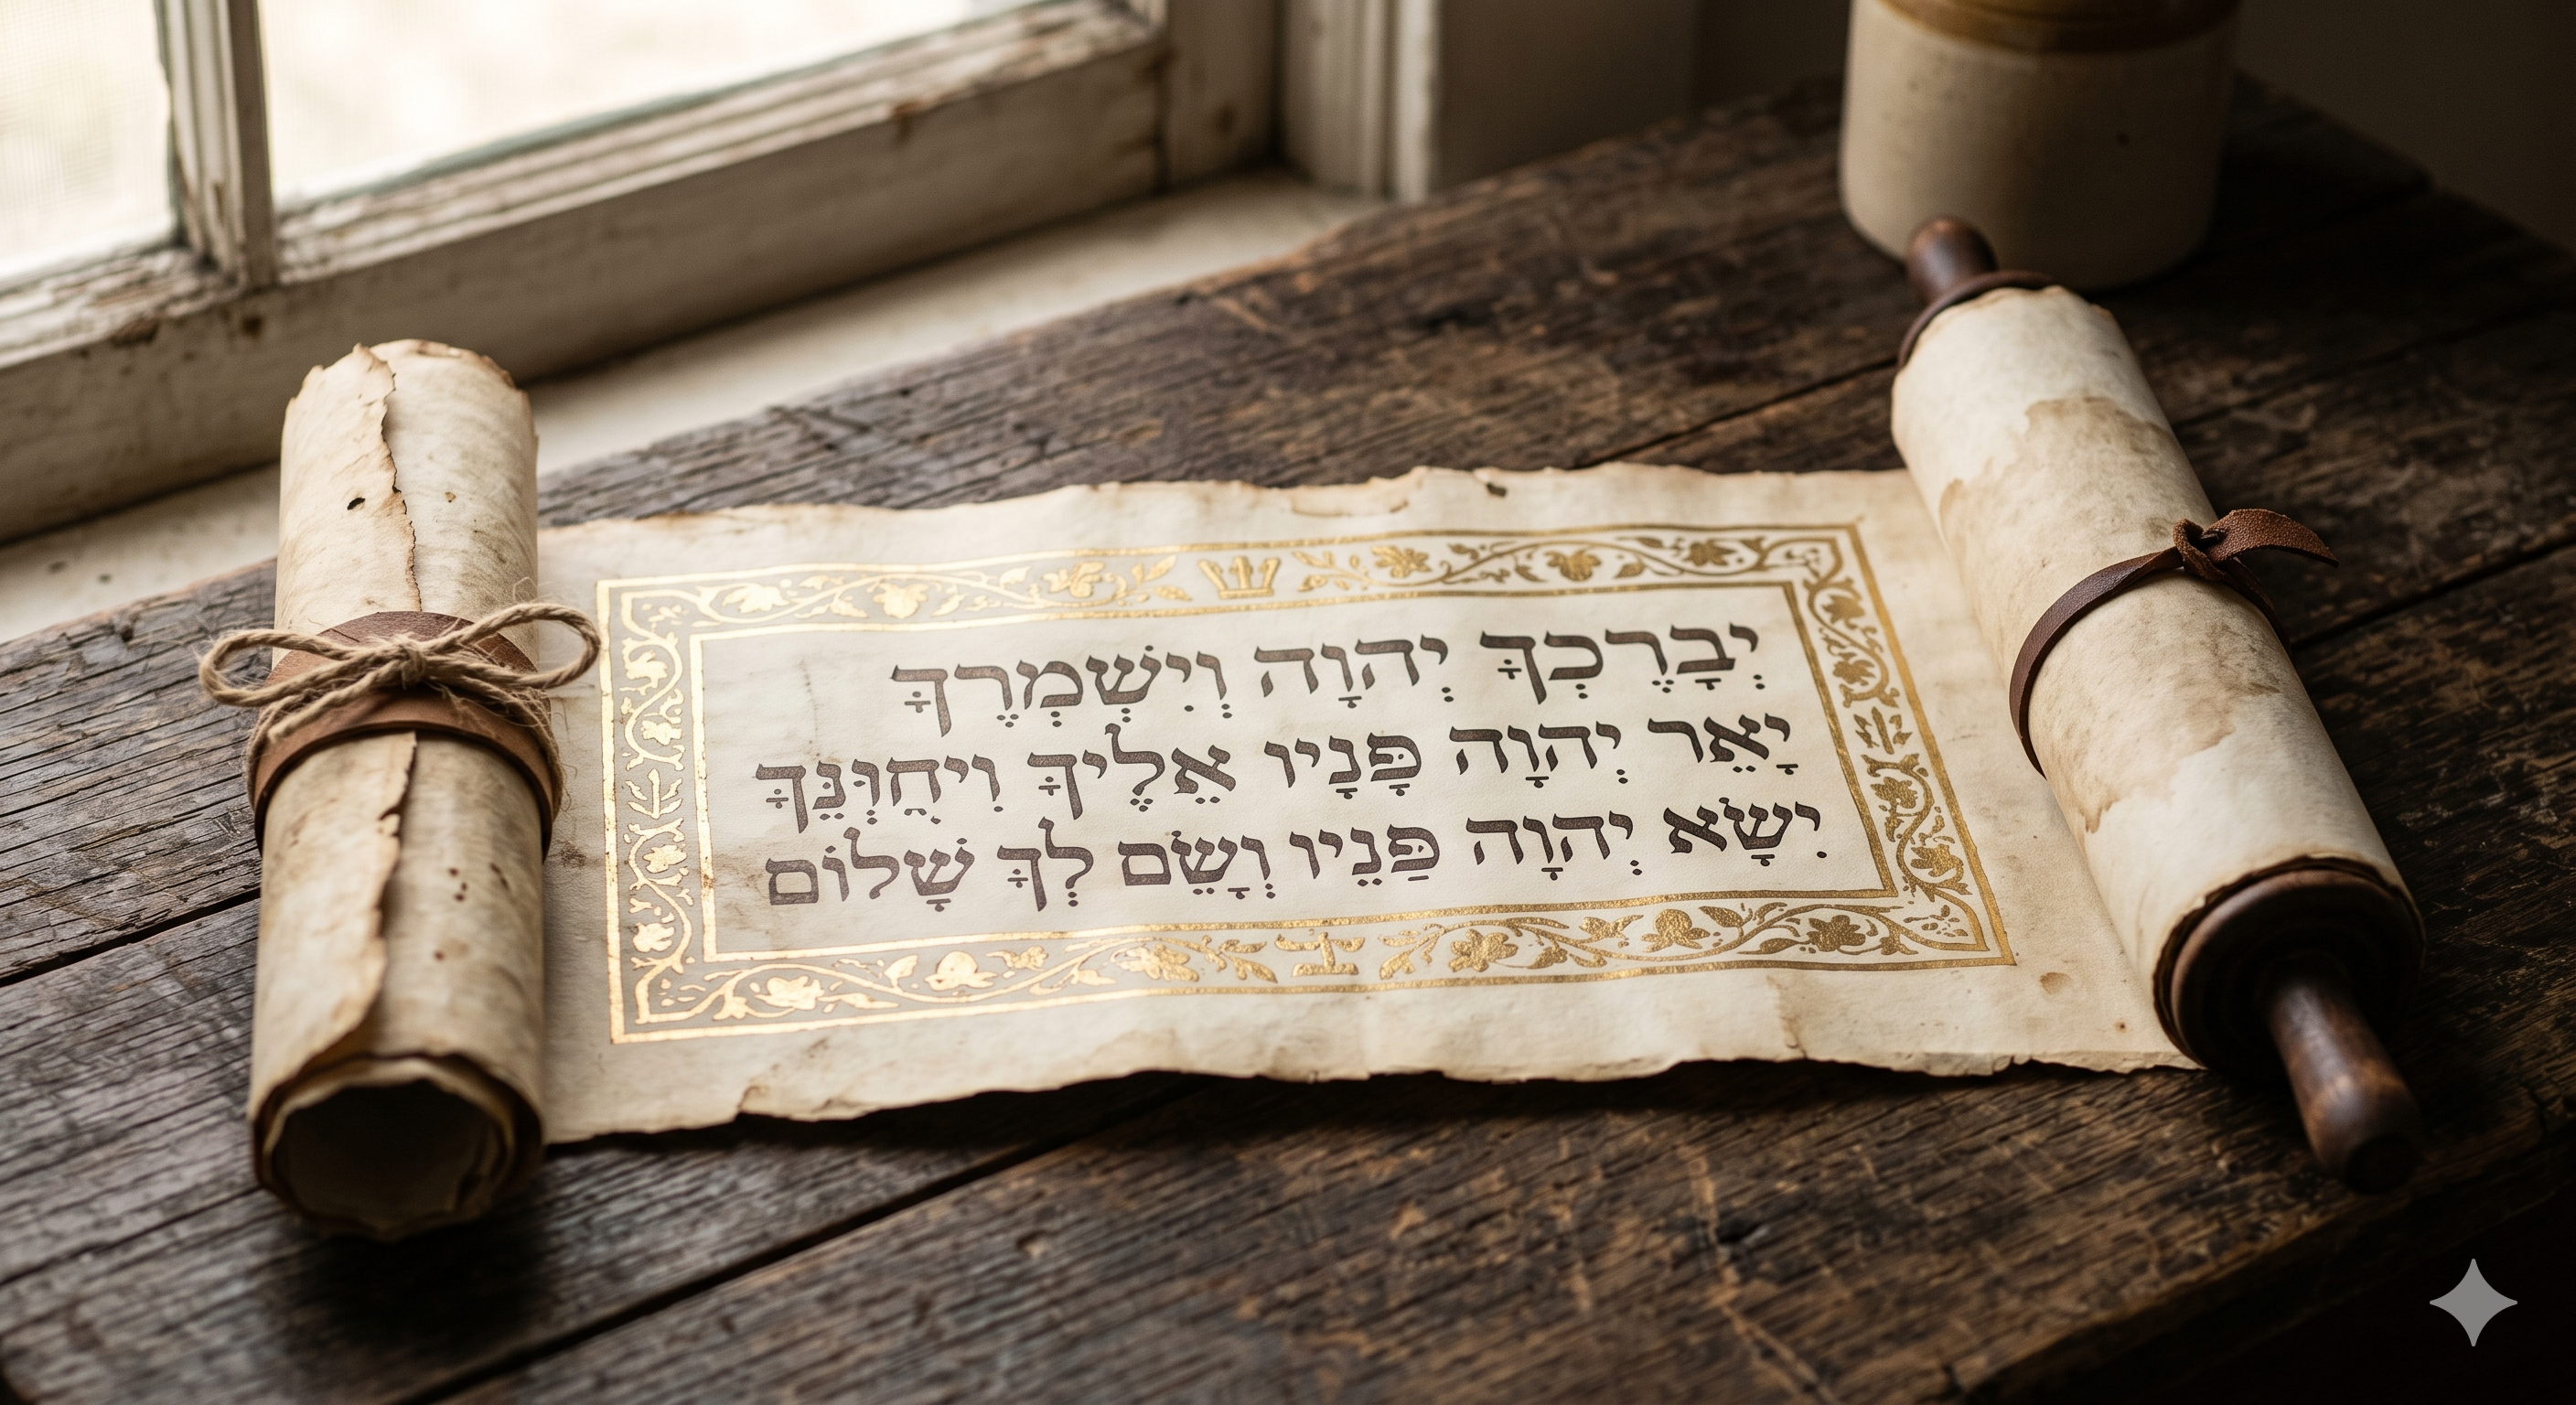 יְבָרֶכְךָּ יְהוָה וְיִשְׁמְרֶךָּ
יָאֵר יְהוָה פָּנָיו אֵלֶיךָּ וִיחֻוּנֵּךָּ
יִשָּׂא יְהוָה פַּנֵיו וְשָׂם לְךָּ שָׁלוֹם